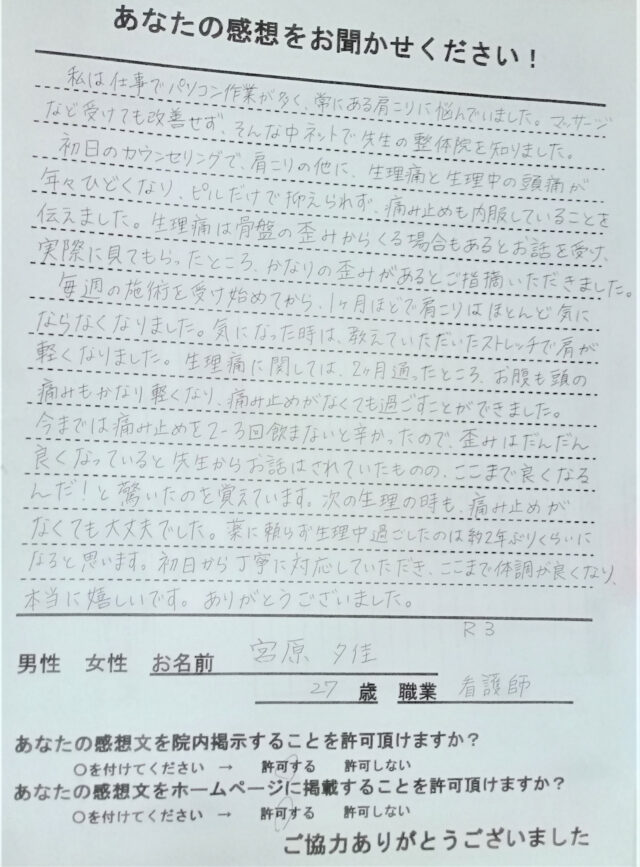 あなたの感想をお聞かせください！
私は仕事でパソコン作業が多く、常にある肩こりに悩んでいました。マッサージ
など受けても改善せず、そんな中ネットで先生の整体院を知りました。
初日のカウンセリングで、肩こりの他に、生理痛と生理中の頭痛が
年々ひどくなり、ピルだけで抑えられず、痛み止めも内服していることを
伝えました。生理痛は骨盤の歪みからくる場合もあるとお話を受け、
実際に見てもらったところ、かなりの歪みがあるとご指摘いただきました。
毎週の施術を受け始めてから、1ヶ月ほどで肩こりはほとんど気に
ならなくなりました。気になった時は、教えていただいたストレッチで肩が
軽くなりました。生理痛に関しては、2ヶ月通ったところ、お腹も頭の
痛みもかなり軽くなり、痛み止めがなくても過ごすことができました。
今までは痛み止めを2-3回飲まないと辛かったので、歪みはだんだん
良くなっていると先生からお話はされていたものの、ここまで良くなる
んだ！と驚いたのを覚えています。次の生理の時も、痛み止めが
なくても大丈夫でした。薬に頼らず生理中過ごしたのは約2年ぶりくらいに
なると思います。初日から丁寧に対応していただき、ここまで体調が良くなり、
本当に嬉しいです。ありがとうございました。
R3
男性 女性 お名前 宮原 夕佳
27 歳 職業 看護師
あなたの感想文を院内掲示することを許可頂けますか？
○を付けてください → 許可する 許可しない
あなたの感想文をホームページに掲載することを許可頂けますか？
○を付けてください → 許可する 許可しない
ご協力ありがとうございました